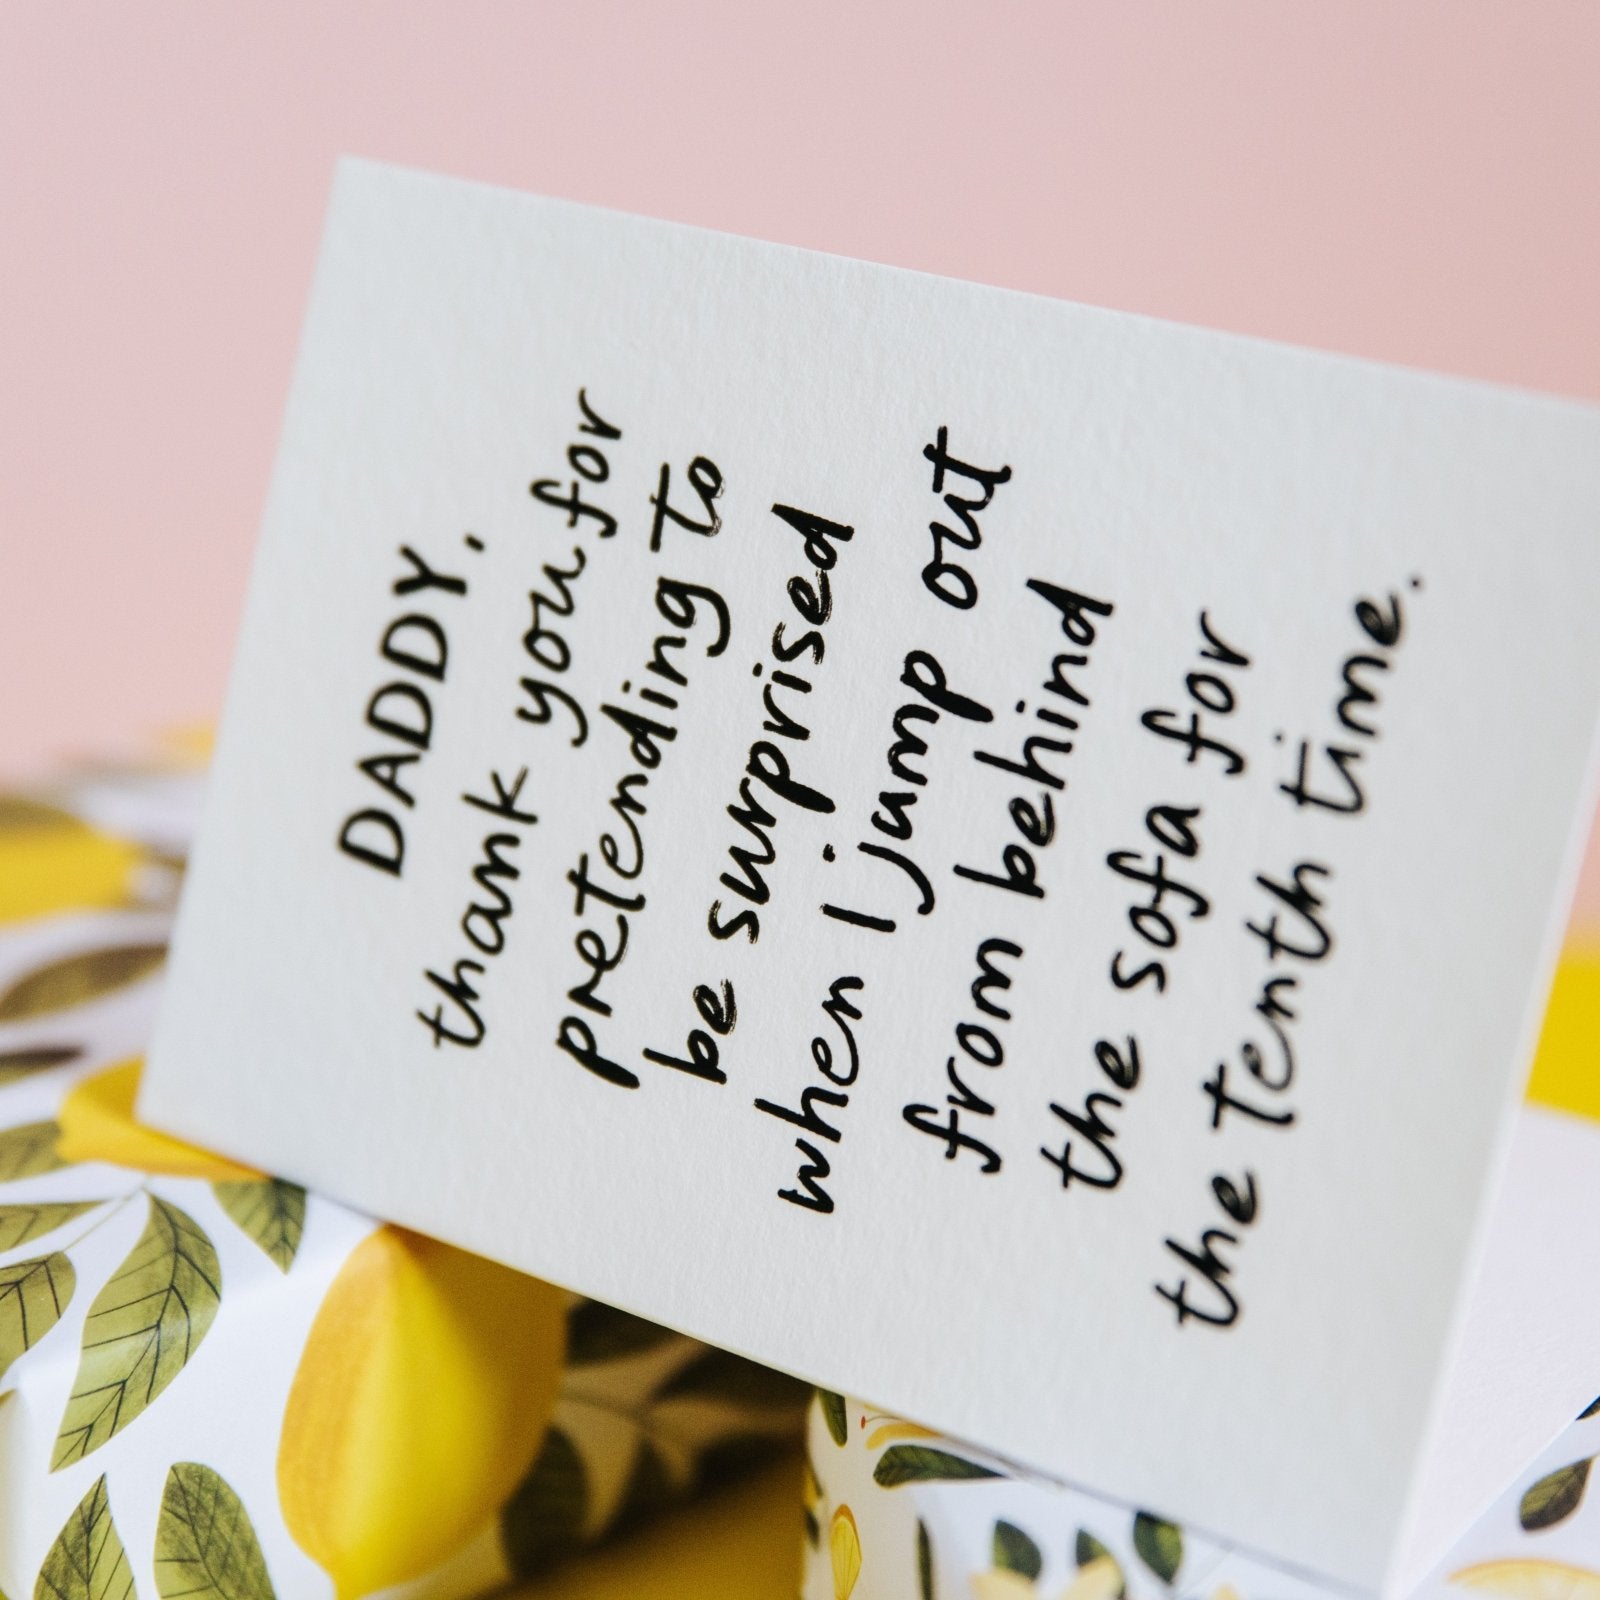 DADDY,
thank you for
pretending to
be surprised
when I jump out
from behind
the sofa for
the tenth time.